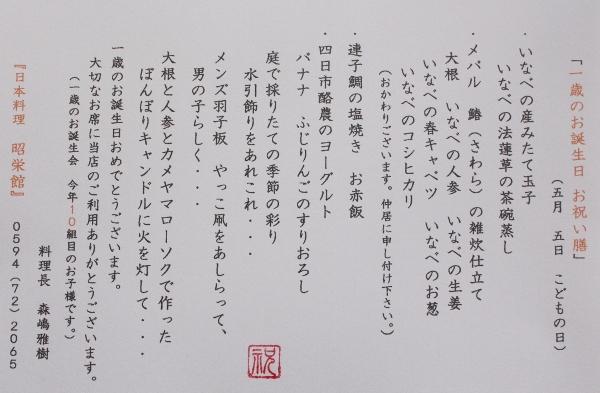 「一歳のお誕生日 お祝い膳」
（五月 五日 こどもの日）
・いなべの産みたて玉子
いなべの法蓮草の茶碗蒸し
・メバル 鰆（さわら）の雑炊仕立て
大根 いなべの人参 いなべの生姜
いなべの春キャベツ いなべのお葱
いなべのコシヒカリ
（おかわりございます。仲居に申し付け下さい。）
・連子鯛の塩焼き お赤飯
・四日市酪農のヨーグルト
バナナ ふじりんごのすりおろし
庭で採りたての季節の彩り
水引飾りをあれこれ・・・
メンズ羽子板 やっこ凧をあしらって、
男の子らしく・・・
大根と人参とカメヤマローソクで作った
ぼんぼりキャンドルに火を灯して・・・
一歳のお誕生日おめでとうございます。
大切なお席に当店のご利用ありがとうございます。
（一歳のお誕生会 今年10組目のお子様です。）
料理長 森嶋雅樹
『日本料理 昭栄館』 0594（72）2065
祝